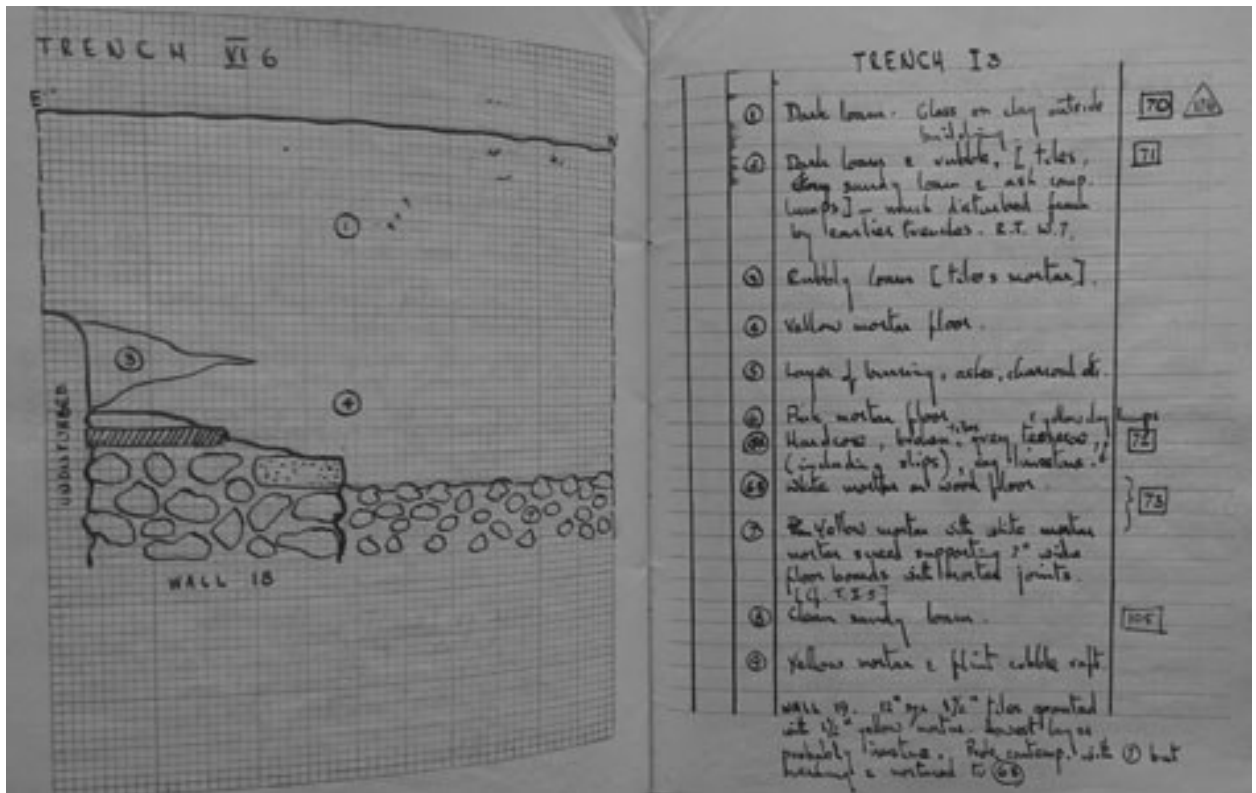 TRENCH VI 6
E
①
③
④
UNDISTURBED
WALL 18
TRENCH I 3
① Dark loam. Glass on clay outside 70
building
② Dark loam & rubble, [tiles, 71
sandy loam & ash comp.
lumps] – much disturbed
by earlier trenches. E.T. W.T.
③ Rubbly loam [tiles mortar].
④ Yellow mortar floor.
⑤ Layer of burning, ashes, charcoal etc.
⑥ Pink mortar floor, & yellow clay lumps
Hardcore, broken tiles, grey tesserae, 72
(including slips), limestone.
6B White mortar on wood floor. 73
⑦ Yellow mortar with white mortar
mortar screed supporting 3" wide
floor boards with mortar joints.
[cf. T. I 5]
⑧ Clean sandy loam. 105
⑨ Yellow mortar & flint cobble raft.
WALL 19. 12" tiles grouted
with 1½" yellow mortar. Lowest layer
probably limestone. contemp. with ⑦ but
& mortared to 6B